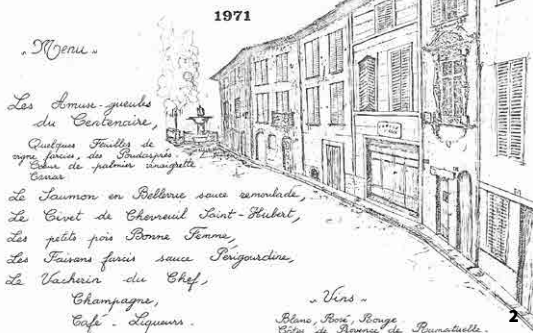 1971
„ Menu „
Les Amuse-gueules
du Centenaire,
Quelques Feuilles de
vigne farcies, des Goudasprés
Cœur de palmier vinaigrette
Caviar
Le Saumon en Bellevue sauce remoulade,
Le Civet de Chevreuil Saint-Hubert,
Les petits pois Bonne Femme,
Les Faisans farcis sauce Périgourdine,
Le Vacherin du Chef,
Champagne,
Café - Liqueurs.
„ Vins „
Blanc, Rosé, Rouge
Côtes de Provence de Ramatuelle.
2